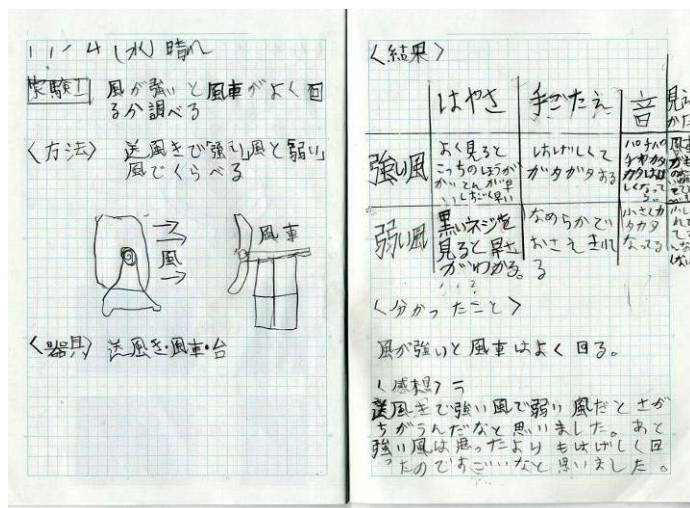 11/4(水)晴れ
実験1 風が強いと風車がよく回
るか調べる
〈方法〉 送風きで「強い」風と「弱い」
風でくらべる
風
風車
〈器具〉 送風き・風車・台
〈結果〉
はやさ 手ごたえ 音
強い風
よく見ると
こっちのほうが
はげしくて
ガタガタする
弱い風
黒いネジを
見ると早さ
がわかる。
なめらかで
おさえきれ
る
小さくカ
タカタ
なってる
〈分かったこと〉
風が強いと風車はよく回る。
〈感想〉
送風きで強い風で弱い風だとさが
ちがうんだなと思いました。あと
強い風は思ったよりもはげしく回
ったのですごいなと思いました。